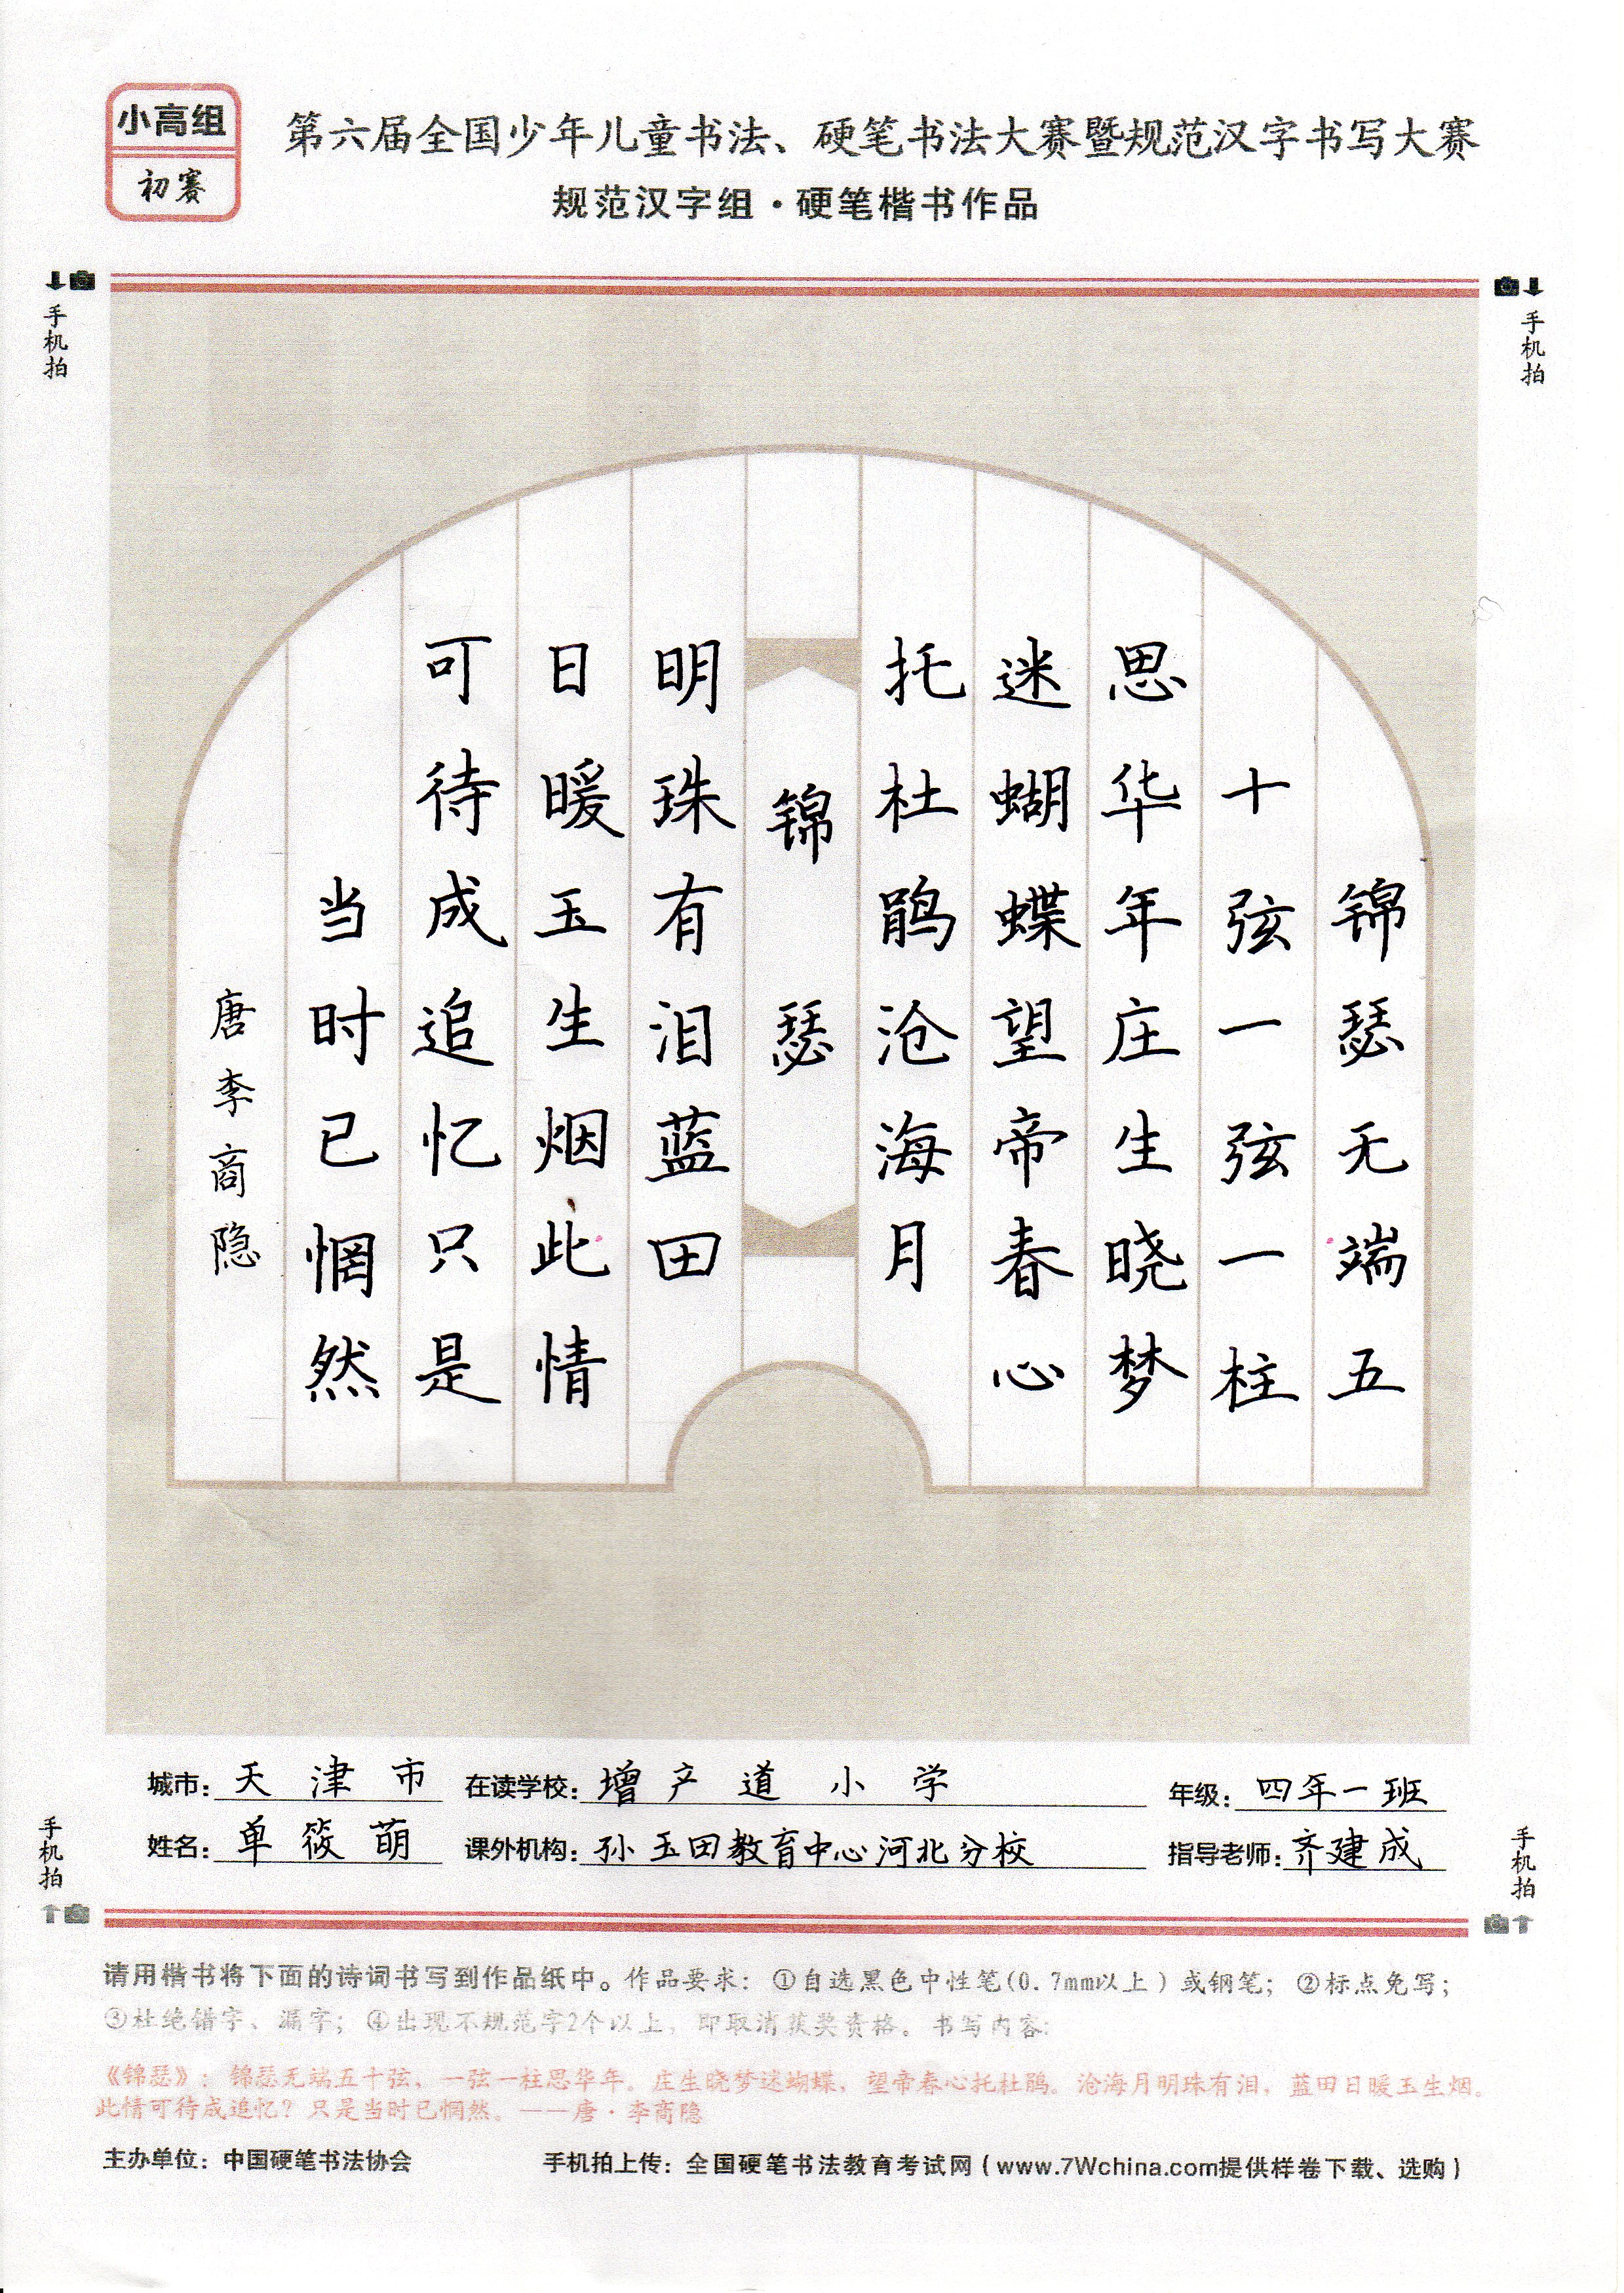 小高组
初赛
第六届全国少年儿童书法、硬笔书法大赛暨规范汉字书写大赛
规范汉字组·硬笔楷书作品
手机拍
手机拍
锦瑟无端五
十弦一弦一柱
思华年庄生晓梦
迷蝴蝶望帝春心
托杜鹃沧海月
锦瑟
明珠有泪蓝田
日暖玉生烟此情
可待成追忆只是
当时已惘然
唐李商隐
城市：天津市 在读学校：增产道小学 年级：四年一班
姓名：单筱萌 课外机构：孙玉田教育中心河北分校 指导老师：齐建成
手机拍
手机拍
请用楷书将下面的诗词书写到作品纸中。作品要求：①自选黑色中性笔(0.7mm以上)或钢笔；②标点免写；
③杜绝错字、漏字；④出现不规范字2个以上，即取消获奖资格。书写内容：
《锦瑟》：锦瑟无端五十弦，一弦一柱思华年。庄生晓梦迷蝴蝶，望帝春心托杜鹃。沧海月明珠有泪，蓝田日暖玉生烟。
此情可待成追忆？只是当时已惘然。——唐·李商隐
主办单位：中国硬笔书法协会 手机拍上传：全国硬笔书法教育考试网（www.7Wchina.com提供样卷下载、选购）